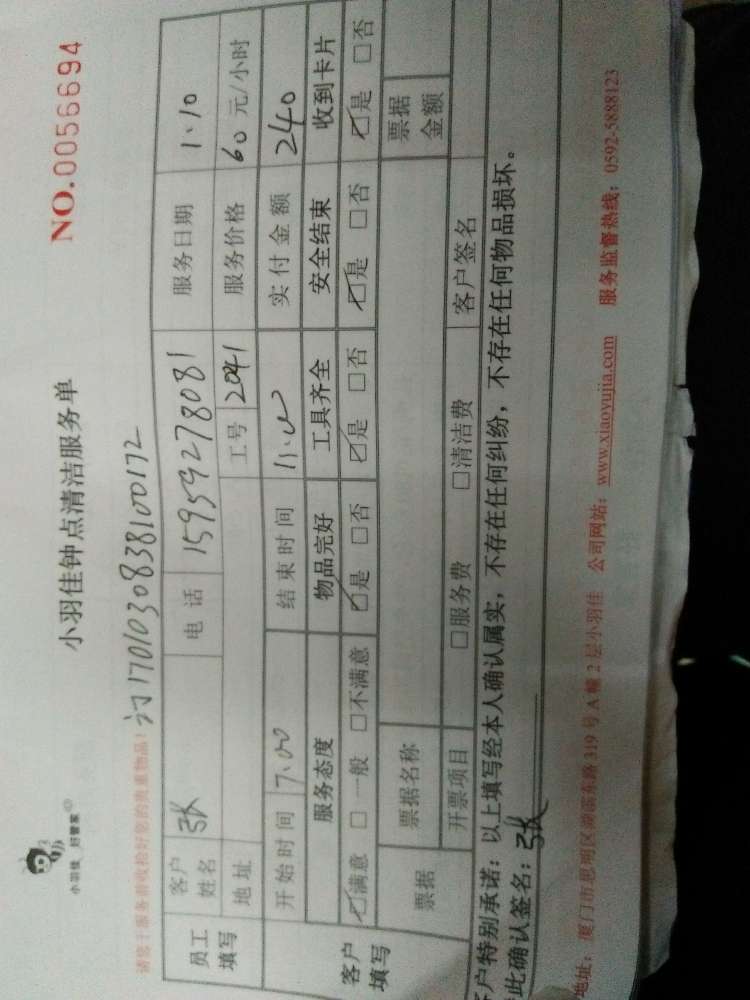 小羽佳 好管家
小羽佳钟点清洁服务单
NO.0056694
请您于服务前收拾好您的贵重物品!
订1701030838100172
员工填写 客户姓名 张 电话 15959278081 服务日期 1.10
地址 工号 2041 服务价格 60 元/小时
开始时间 7:00 结束时间 11:00 实付金额 240
客户填写 服务态度 物品完好 工具齐全 安全结束 收到卡片
☑满意 □一般 □不满意 ☑是 □否 ☑是 □否 ☑是 □否 ☑是 □否
票据 票据名称 票据金额
开票项目 □服务费 □清洁费 客户签名
客户特别承诺:以上填写经本人确认属实,不存在任何纠纷,不存在任何物品损坏。
此确认签名:张
地址:厦门市思明区湖滨东路319号A幢2层小羽佳 公司网站:www.xiaoyujia.com 服务监督热线:0592-5888123